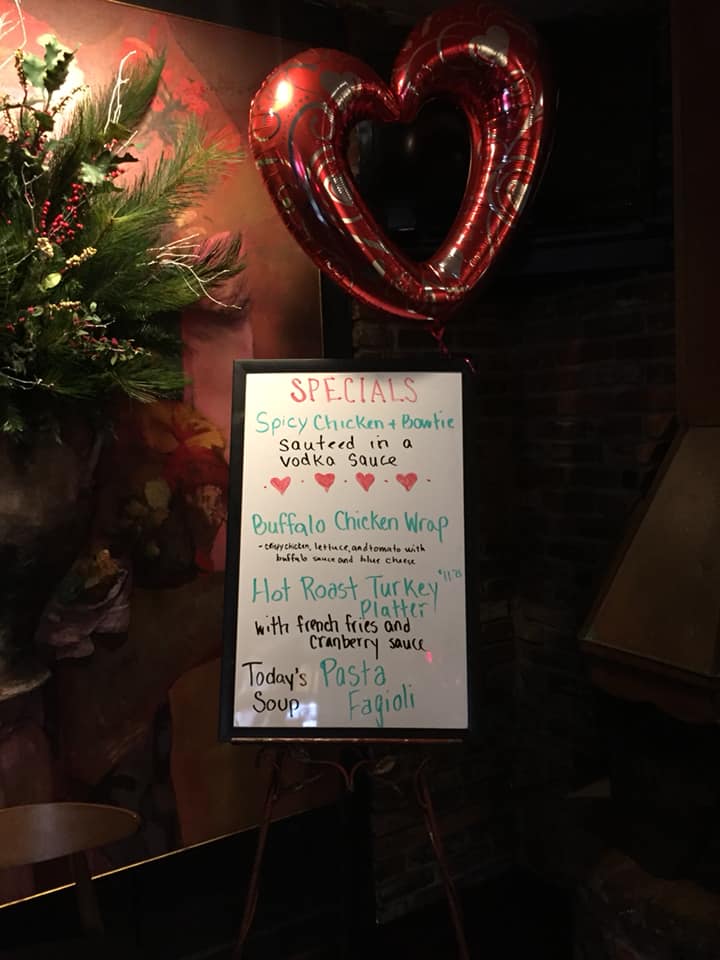 SPECIALS
Spicy Chicken + Bowtie
sauteed in a
vodka sauce
Buffalo Chicken Wrap
- crispy chicken, lettuce, and tomato with
buffalo sauce and blue cheese
Hot Roast Turkey
Platter
with french fries and
cranberry sauce
Today's Pasta
Soup Fagioli